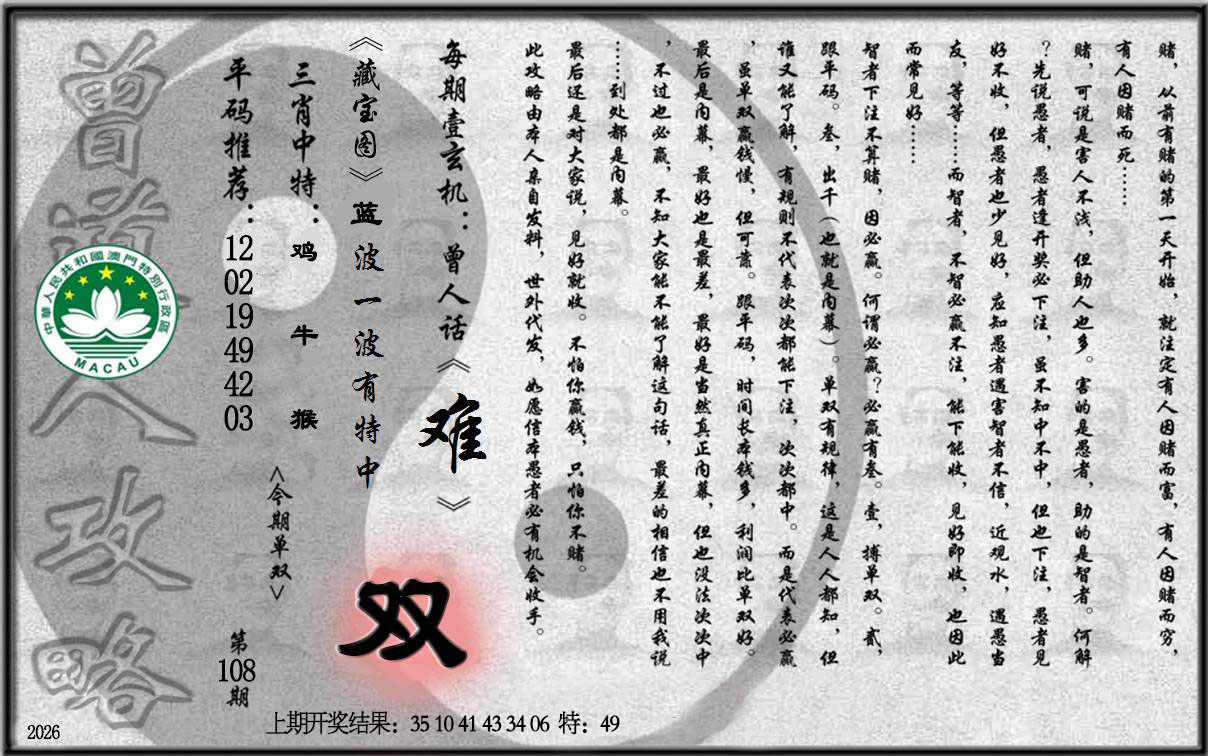 赌，从前有赌的第一天开始，就注定有人因赌而富，有人因赌而穷，
有人因赌而死……
赌，可说是害人不浅，但助人也多。害的是愚者，助的是智者。何解
？先说愚者，愚者逢开奖必下注，虽不知中不中，但也下注，愚者见
好不收，但愚者也少见好，应知愚者遇害智者不信，近观水，遇愚当
友，等等……而智者，不智必赢不注，能下能收，见好即收，也因此
而常见好……
智者下注不算赌，因必赢。何谓必赢？必赢有叁。壹，搏单双。贰，
跟平码。叁，出千（也就是内幕）。单双有规律，这是人人都知，但
谁又能了解，有规则不代表次次都能下注，次次都中。而是代表必赢
，虽单双赢钱慢，但可靠。跟平码，时间长本钱多，利润比单双好。
最后是内幕，最好也是最差，最好是当然真正内幕，但也没法次次中
，不过也必赢，不知大家能不能了解这句话，最差的相信也不用我说
……到处都是内幕。
最后还是对大家说，见好就收。不怕你赢钱，只怕你不赌。
此攻略由本人亲自发料，世外代发，如愿信本愚者必有机会收手。
每期壹玄机：曾人话《难》
《藏宝图》蓝波一波有特中
双
三肖中特：鸡 牛 猴
<今期单双>
平码推荐：12 02 19 49 42 03
第108期
曾道人攻略
中華人民共和國澳門特別行政區
MACAU
2026
上期开奖结果：35 10 41 43 34 06 特：49